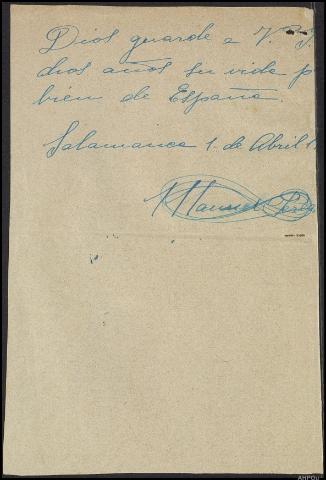 Dios guarde a V. I.
dios años su vida p
bien de España.
Salamanca 1 de Abril 1
Manuel Pérez
AHPOu